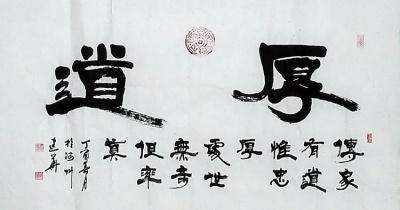 厚道
傳家
有道
惟忠
厚
處世
無奇
但率
真
丁酉春月